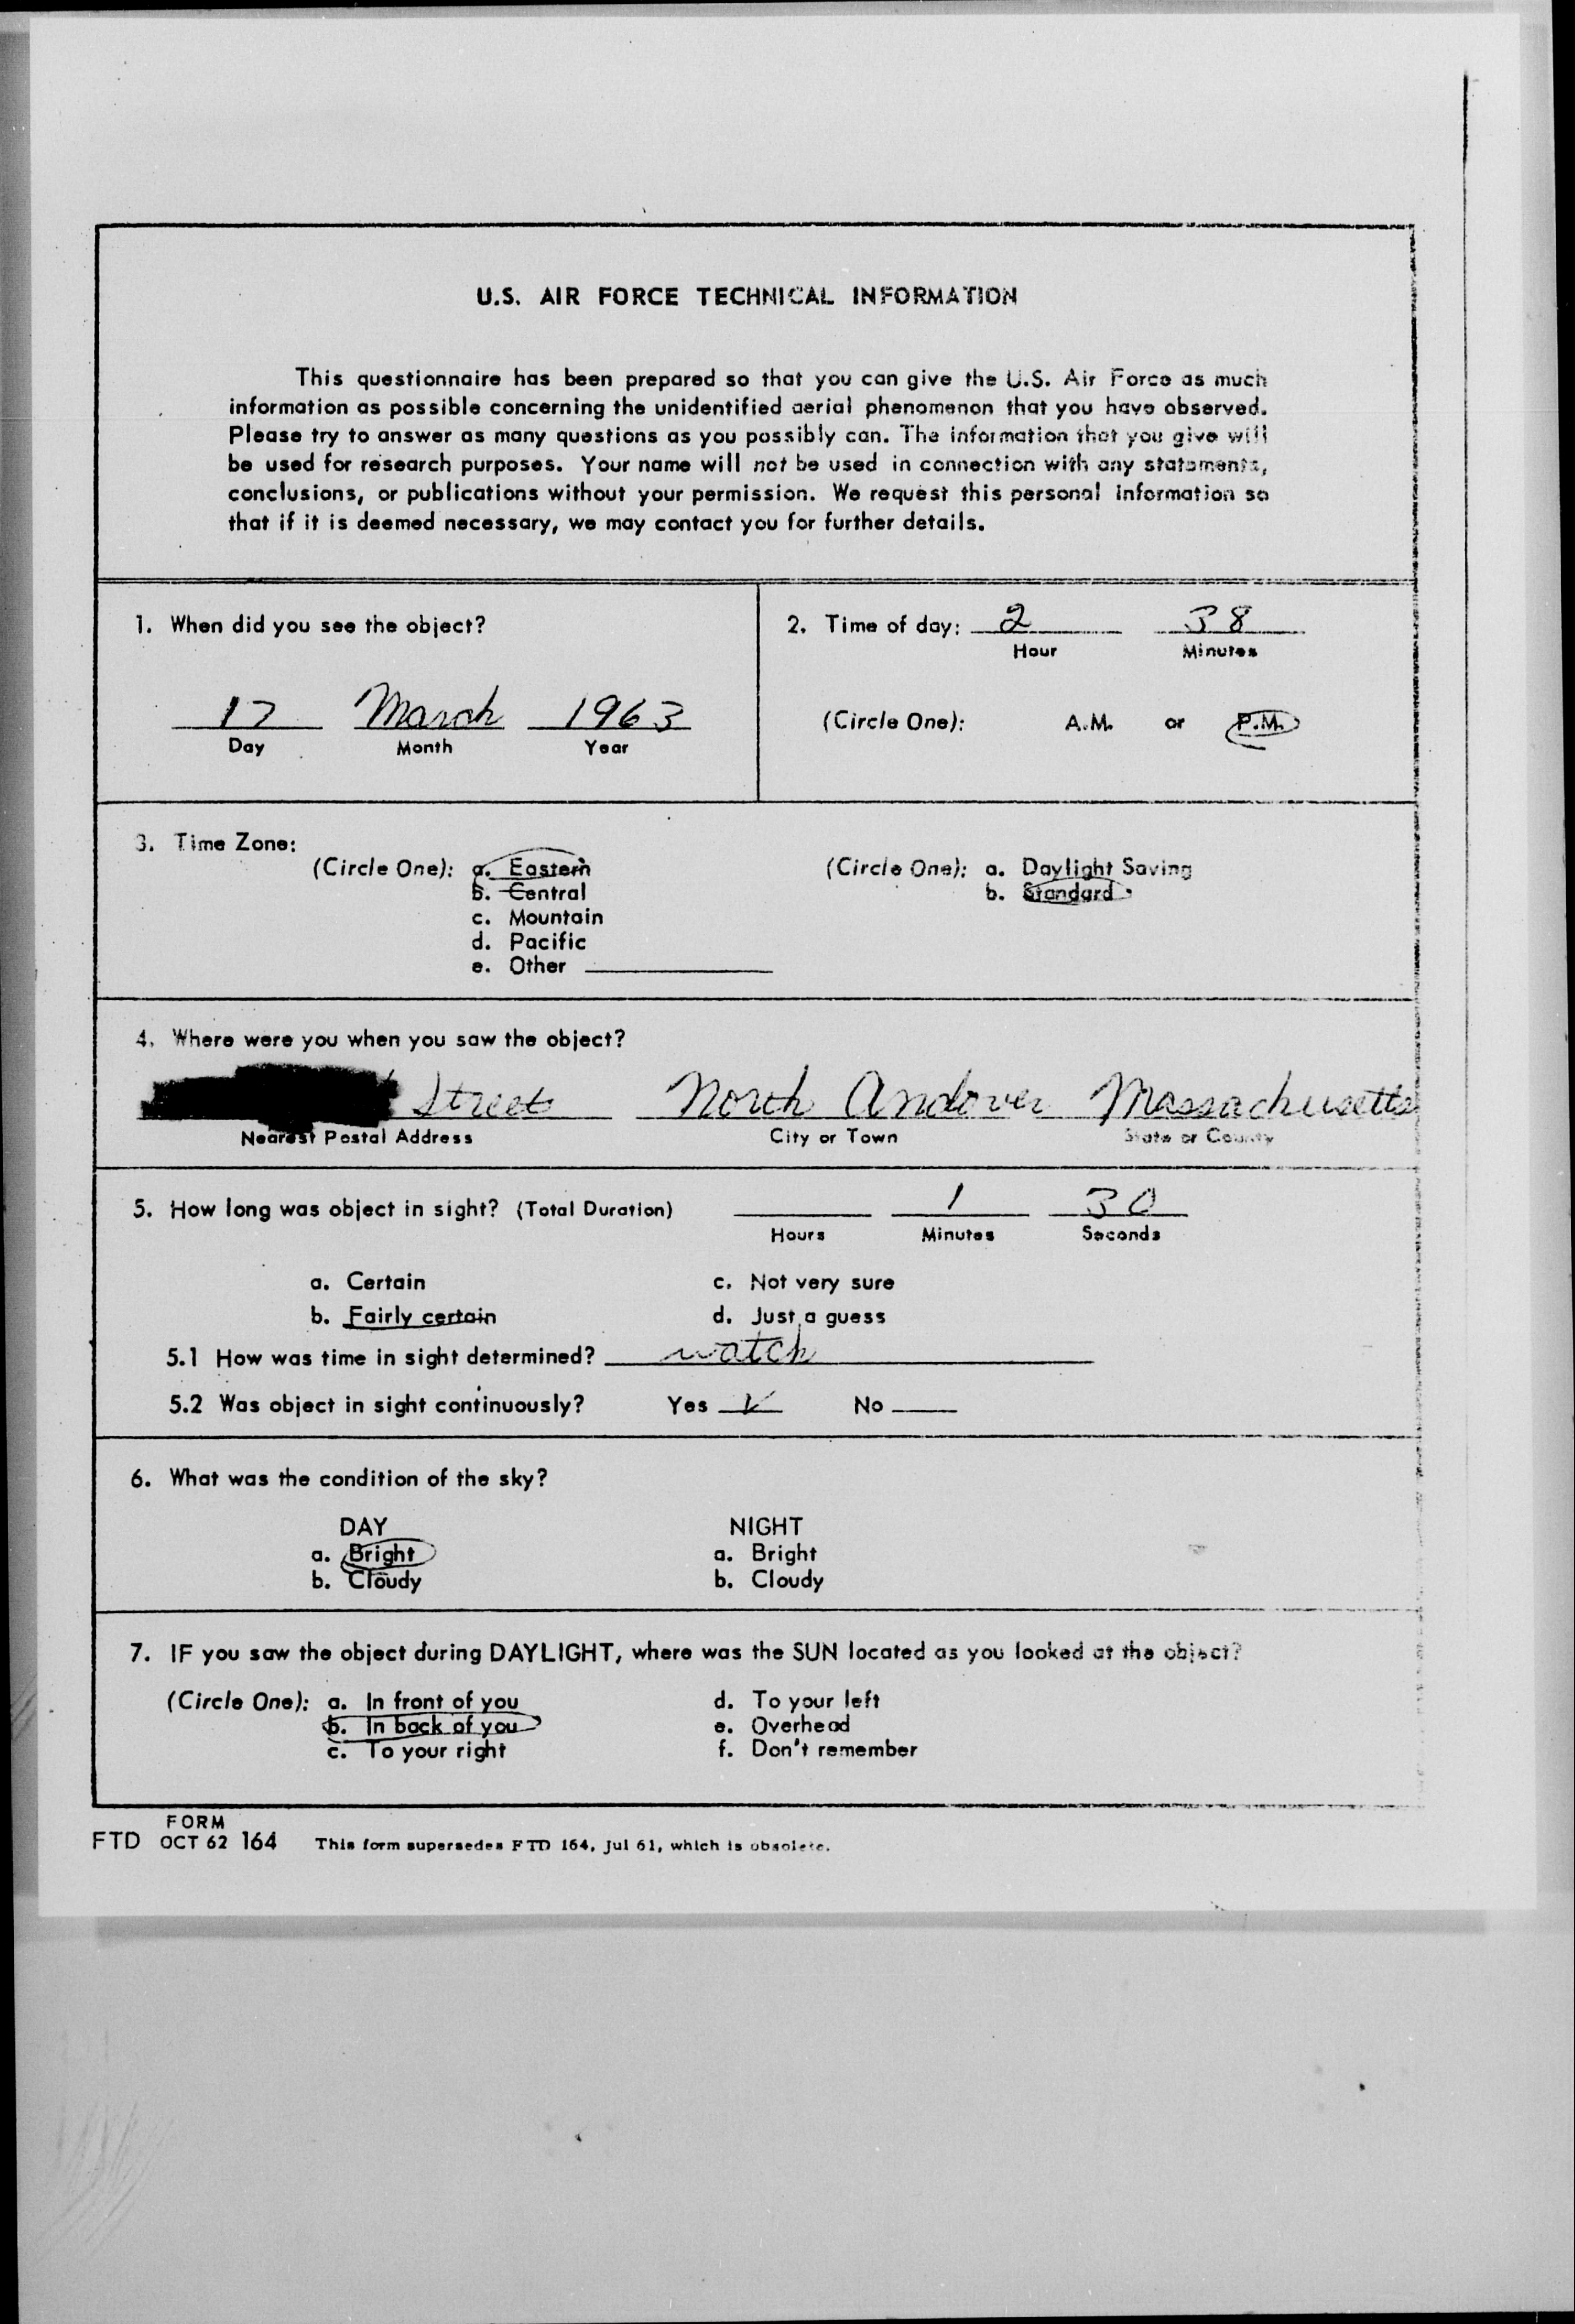 U.S. AIR FORCE TECHNICAL INFORMATION
This questionnaire has been prepared so that you can give the U.S. Air Force as much
information as possible concerning the unidentified aerial phenomenon that you have observed.
Please try to answer as many questions as you possibly can. The information that you give will
be used for research purposes. Your name will not be used in connection with any statements,
conclusions, or publications without your permission. We request this personal information so
that if it is deemed necessary, we may contact you for further details.
1. When did you see the object?
17 March 1963
Day Month Year
2. Time of day: 2 38
Hour Minutes
(Circle One): A.M. or P.M.
3. Time Zone:
(Circle One): a. Eastern
b. Central
c. Mountain
d. Pacific
e. Other
(Circle One): a. Daylight Saving
b. Standard
4. Where were you when you saw the object?
Street North Andover Massachusetts
Nearest Postal Address City or Town State or County
5. How long was object in sight? (Total Duration) 1 30
Hours Minutes Seconds
a. Certain c. Not very sure
b. Fairly certain d. Just a guess
5.1 How was time in sight determined? watch
5.2 Was object in sight continuously? Yes ✓ No
6. What was the condition of the sky?
DAY NIGHT
a. Bright a. Bright
b. Cloudy b. Cloudy
7. IF you saw the object during DAYLIGHT, where was the SUN located as you looked at the object?
(Circle One): a. In front of you d. To your left
b. In back of you e. Overhead
c. To your right f. Don't remember
FORM
FTD OCT 62 164 This form supersedes FTD 164, Jul 61, which is obsolete.